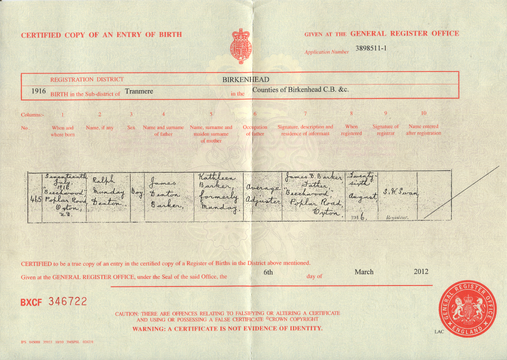 CERTIFIED COPY OF AN ENTRY OF BIRTH
GIVEN AT THE GENERAL REGISTER OFFICE
Application Number 3898511-1
REGISTRATION DISTRICT BIRKENHEAD
1916 BIRTH in the Sub-district of Tranmere in the Counties of Birkenhead C.B. &c.
Columns:- 1 2 3 4 5 6 7 8 9 10
No. When and where born Name, if any Sex Name and surname of father Name, surname and maiden surname of mother Occupation of father Signature, description and residence of informant When registered Signature of registrar Name entered after registration
465
Seventeenth July 1916 "Beechwood" Poplar Road Oxton,
Ralph Munday Denton
Boy
James Denton Barker,
Kathleen Barker, formerly Munday,
Average Adjuster
James D. Barker Father, "Beechwood" Poplar Road, Oxton,
Twenty sixth August 1916
Registrar.
CERTIFIED to be a true copy of an entry in the certified copy of a Register of Births in the District above mentioned.
Given at the GENERAL REGISTER OFFICE, under the Seal of the said Office, the 6th day of March 2012
BXCF 346722
CAUTION: THERE ARE OFFENCES RELATING TO FALSIFYING OR ALTERING A CERTIFICATE
AND USING OR POSSESSING A FALSE CERTIFICATE ©CROWN COPYRIGHT
WARNING: A CERTIFICATE IS NOT EVIDENCE OF IDENTITY.
GENERAL REGISTER OFFICE
ENGLAND